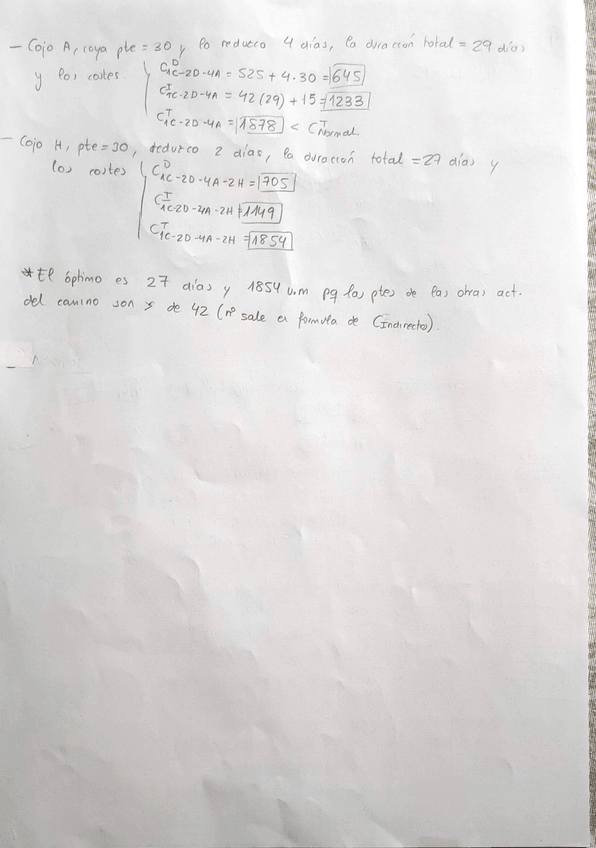 - Cojo A, cuya pte = 30 y lo reduzco 4 días, la duración total = 29 días
y los costes
C^D 1C-2D-4A = 525 + 4·30 = 645
C^I 1C-2D-4A = 42(29) + 15 = 1233
C^T 1C-2D-4A = 1878 < C^T Normal
- Cojo H, pte = 30, reduzco 2 días, la duración total = 27 días y
los costes
C^D 1C-2D-4A-2H = 705
C^I 1C-2D-4A-2H = 1149
C^T 1C-2D-4A-2H = 1854
* El óptimo es 27 días y 1854 u.m pq las ptes de las otras act.
del camino son > de 42 (nº sale en formula de CIndirecto).